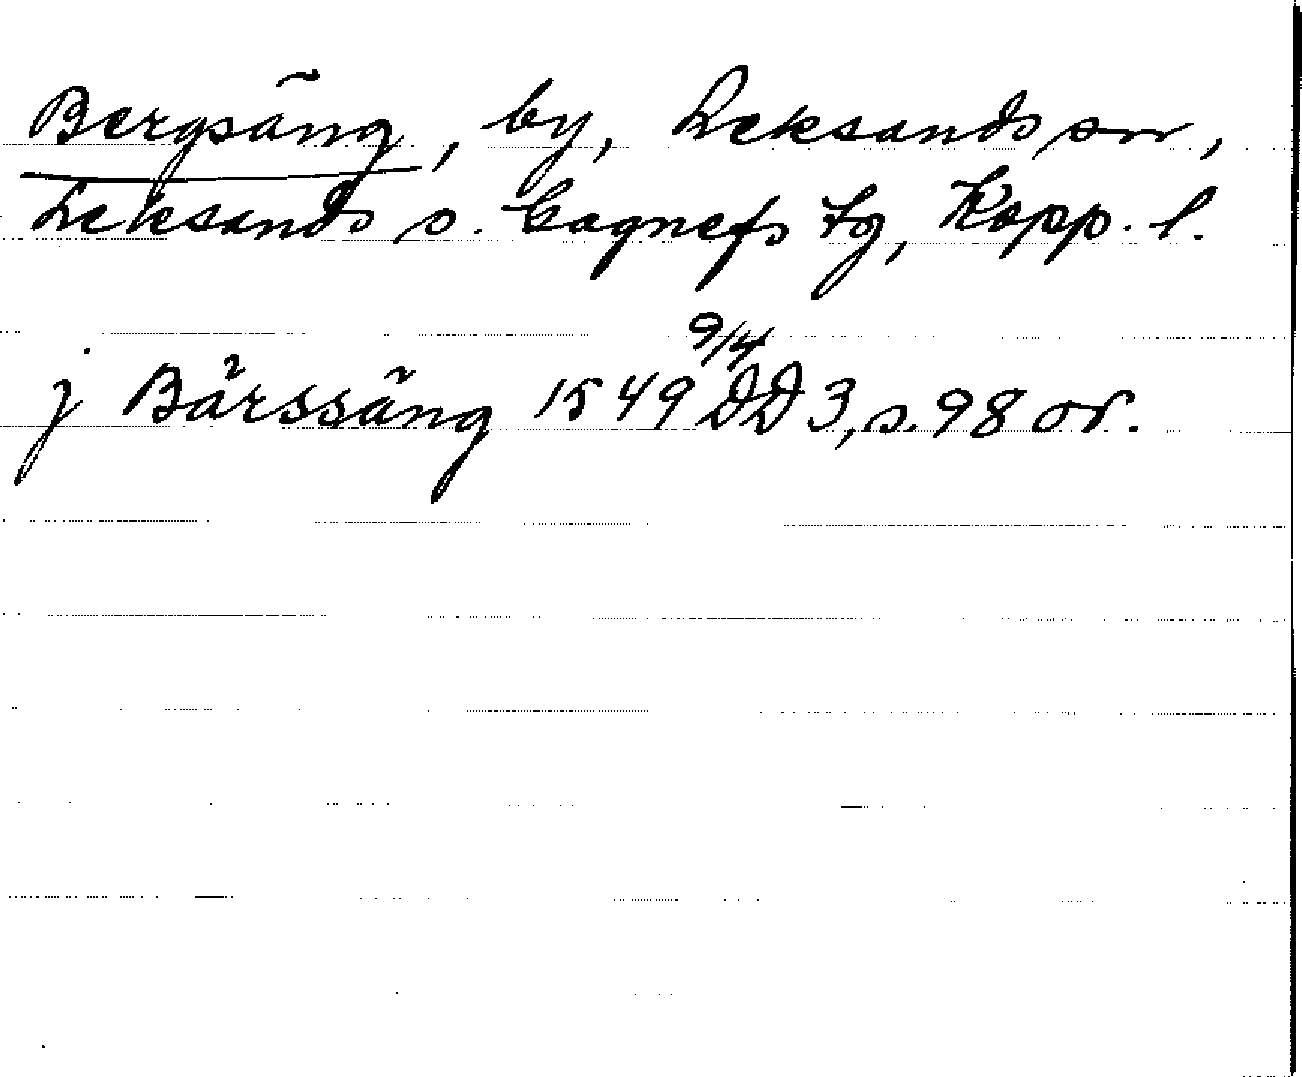 Bergsäng, by, Leksands sn,
Leksands o. Gagnefs tg, Kopp. l.
j Bårssäng 1549 9/4 DD 3, s. 98 or.